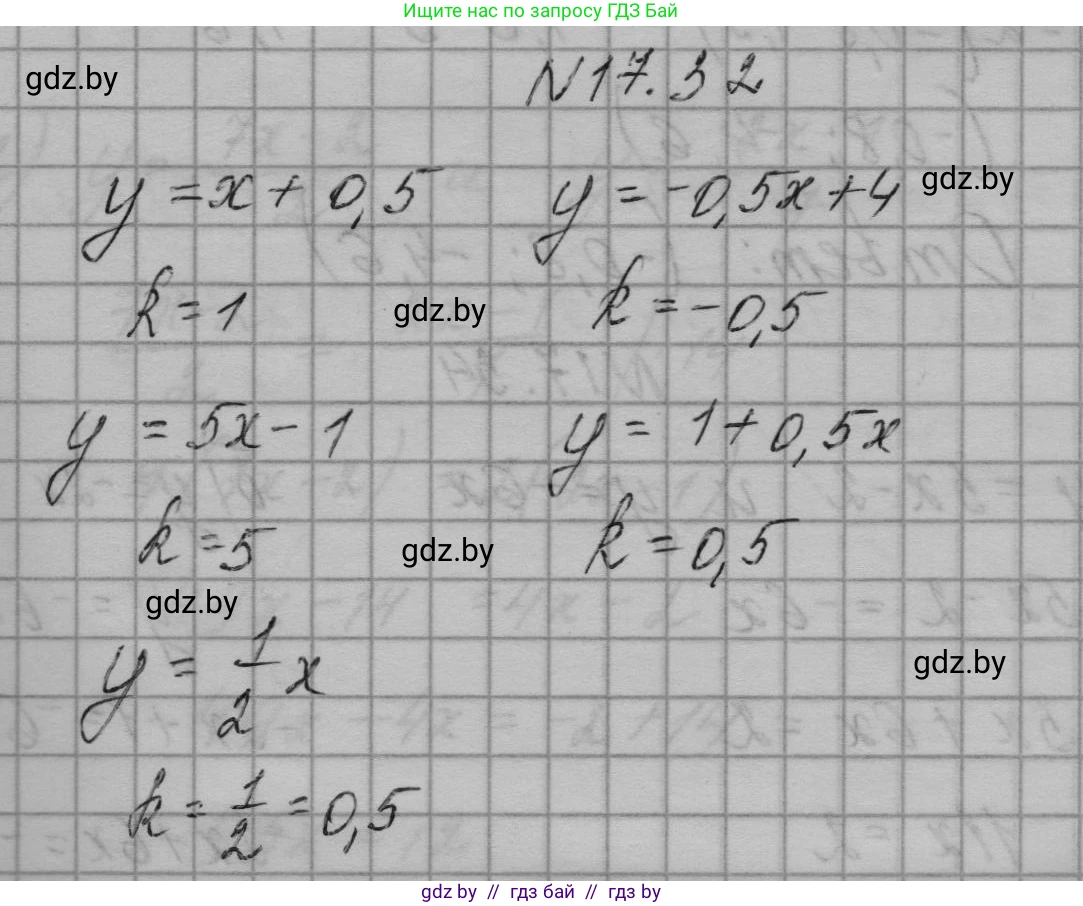 Ищите нас по запросу ГДЗ Бай
gdz.by
N17.32
y = x + 0,5
y = -0,5x + 4
gdz.by
k = 1
gdz.by
k = -0,5
y = 5x - 1
y = 1 + 0,5x
k = 5
gdz.by
k = 0,5
gdz.by
y = 1/2 x
gdz.by
k = 1/2 = 0,5
gdz.by // гдз бай // гдз by